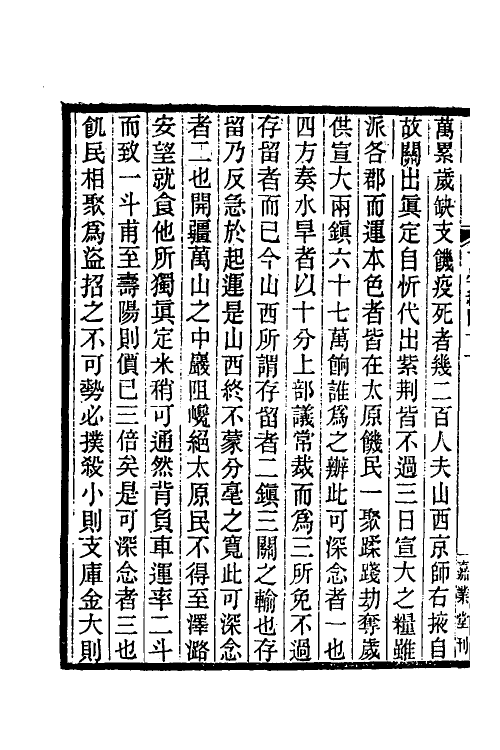 萬累歲缺支饑疫死者幾二百人夫山西京師右掖自
故關出眞定自忻代出紫荆皆不過三日宣大之糧雖
派各郡而運本色者皆在太原饑民一聚蹂踐劫奪歲
供宣大兩鎭六十七萬餉誰爲之辦此可深念者一也
四方奏水旱者以十分上部議常裁而爲三所免不過
存留者而已今山西所謂存留者二鎭三關之輸也存
留乃反急於起運是山西終不蒙分毫之寬此可深念
者二也開疆萬山之中巖阻巉絕太原民不得至澤潞
安望就食他所獨眞定米稍可通然背負車運率二斗
而致一斗甫至壽陽則價已三倍矣是可深念者三也
飢民相聚爲盗招之不可勢必撲殺小則支庫金大則
嘉業堂刊